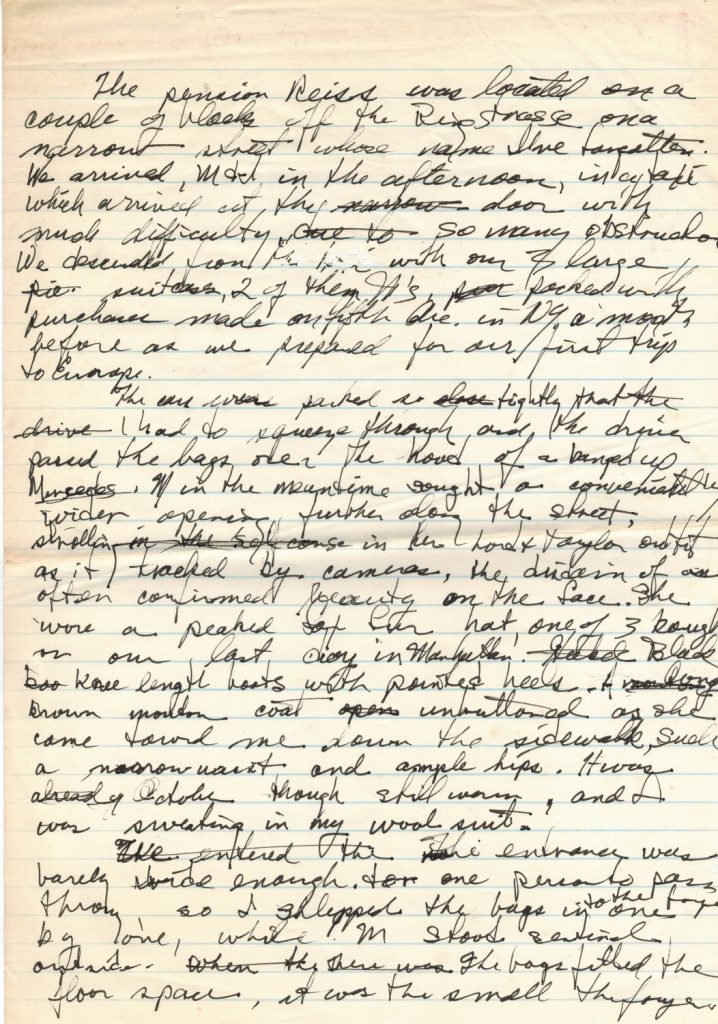 The pension Reiss was located on a
couple of blocks off the Ringstrasse on a
narrow street whose name I've forgotten.
We arrived, M & I in the afternoon, in a
which arrived at the narrow door with
much difficulty, due to so many obstructio
We descended from the with our 3 large
pie suitcases, 2 of them M's, packed with
purchases made on in NY a month
before as we prepared for our first trip
to Europe.
The cars were parked so close tightly that the
drive I had to squeeze through and the driver
passed the bags over the hood of a banged up
Mercedes. M in the meantime sought a convenient
wider opening further along the street,
strolling in the in her Lord & Taylor outfit
as if tracked by cameras, the of an
often confirmed beauty on the face. She
wore a peaked fur hat, one of 3 bough
on our last day in Manhattan. Black
knee length boots with pointed heels. A long
brown mouton coat open unbuttoned as she
came toward me down the sidewalk, such
a narrow waist and ample hips. It was
already October though still warm, and I
was sweating in my wool suit.
The entered the the entrance was
barely wide enough for one person to pass
throug so I shlepped the bags in one
to the foye
by one, while M stood sentinal
outside. When the there was The bags filled the
floor space, it was the small the foyer